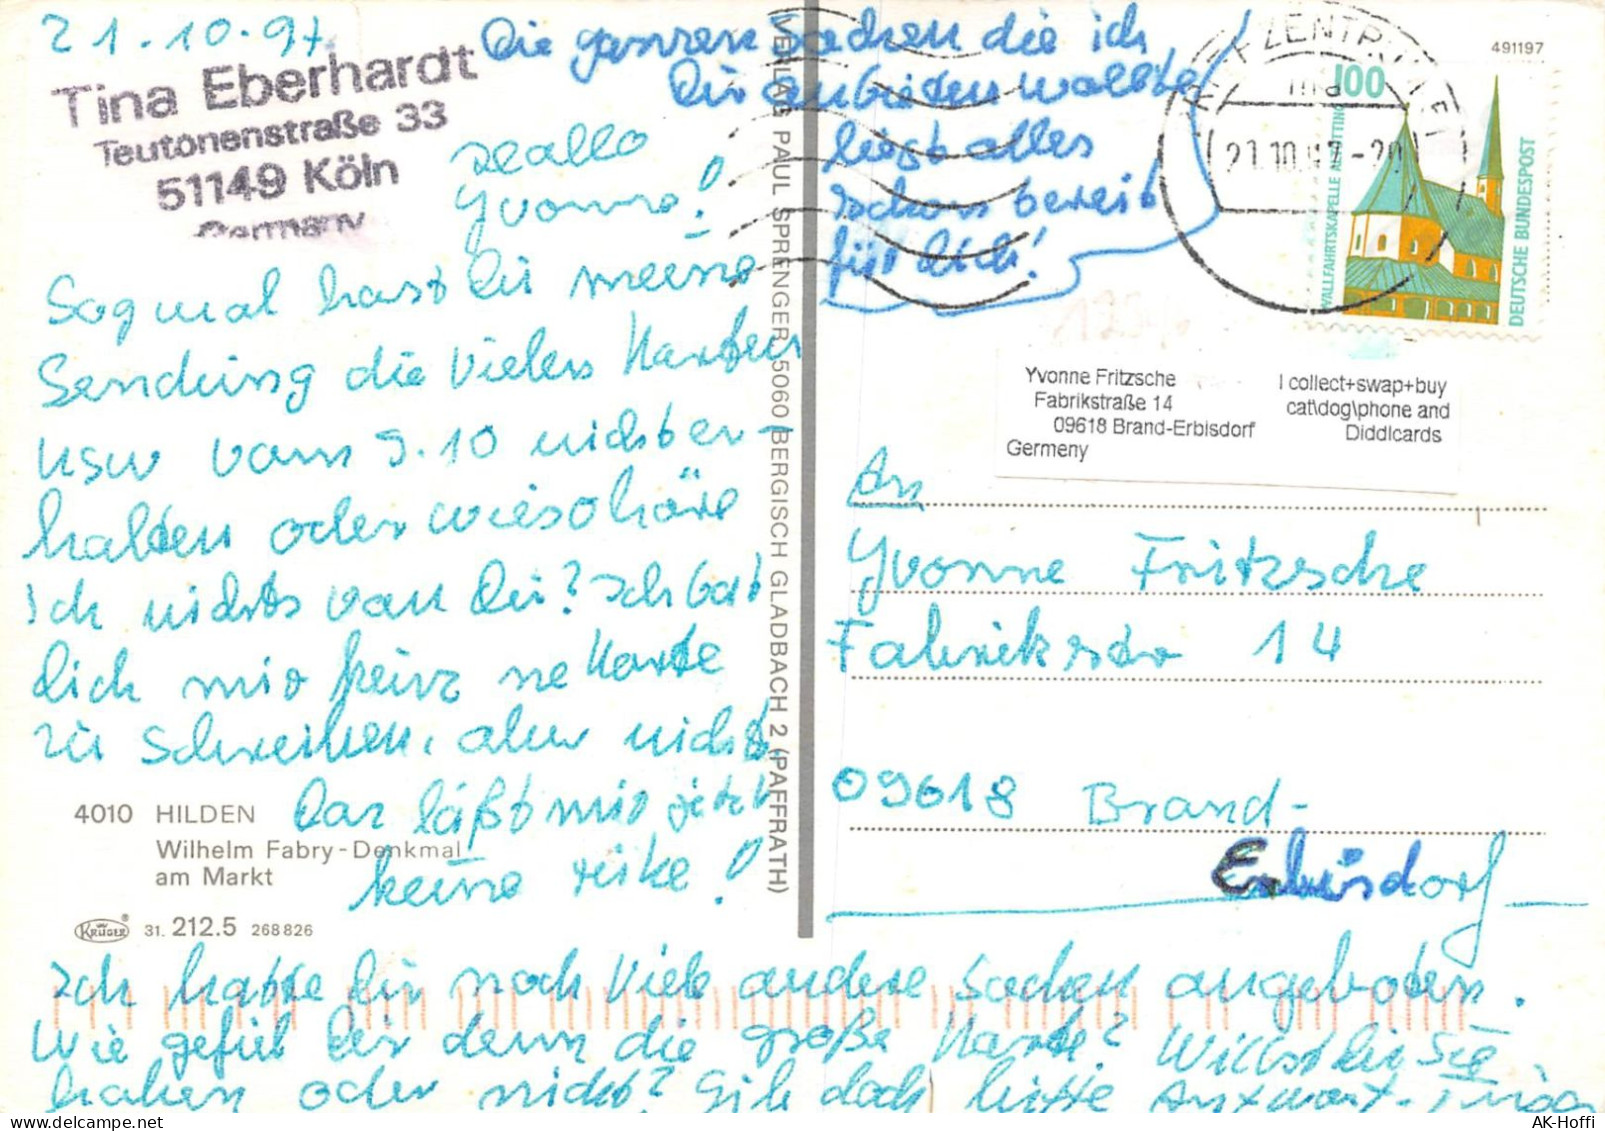 21.10.97
Tina Eberhardt
Teutonenstraße 33
51149 Köln
Germany
Hallo
Yvonne!
Sag mal hast Du meine
Sendung die Vielen Karten
usw vom 9.10 nicht er-
halten oder wieso höre
ich nichts von Dir? Ich bat
Dich mir keine
ne Karte
zu schreiben, aber nicht.
Das läßt mir jetzt
keine ruhe!
Die ganzen Sachen die ich
Dir anbieten wollte
liegt alles
schon bereit
für Dich!
4010 HILDEN
Wilhelm Fabry-Denkmal
am Markt
KRÜGER® 31. 212.5 268826
VERLAG PAUL SPRENGER, 5060 BERGISCH GLADBACH 2 (PAFFRATH)
491197
100
WALLFAHRTSKAPELLE ALTÖTTING
DEUTSCHE BUNDESPOST
21.10.97-20
Yvonne Fritzsche
Fabrikstraße 14
09618 Brand-Erbisdorf
Germeny
I collect+swap+buy
cat\dog\phone and
Diddlcards
An
Yvonne Fritzsche
Fabrikstr 14
09618 Brand-
Erbisdorf
Ich hatte Dir noch Viele andere Sachen angeboten.
Wie gefiel Dir denn die große Karte? Willst Du Sie
haben oder nicht? Gib doch bitte Antwort. Tina
AK-Hoffi